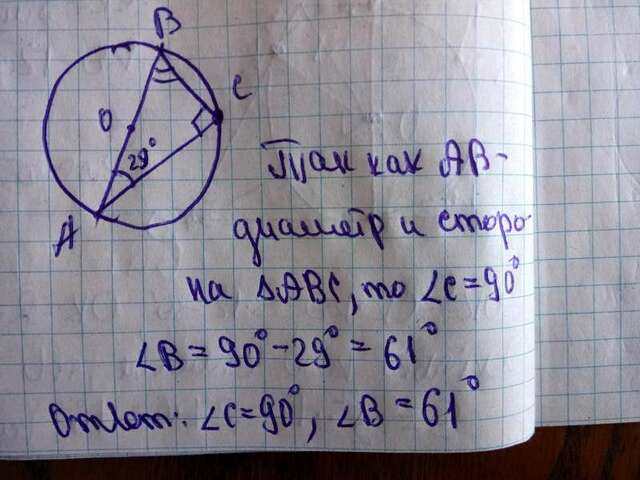 B
C
O
29°
A
Так как АВ-
диаметр и сторо-
на ΔАВС, то ∠С=90°
∠В = 90° - 29° = 61°
Ответ: ∠С=90°, ∠В = 61°